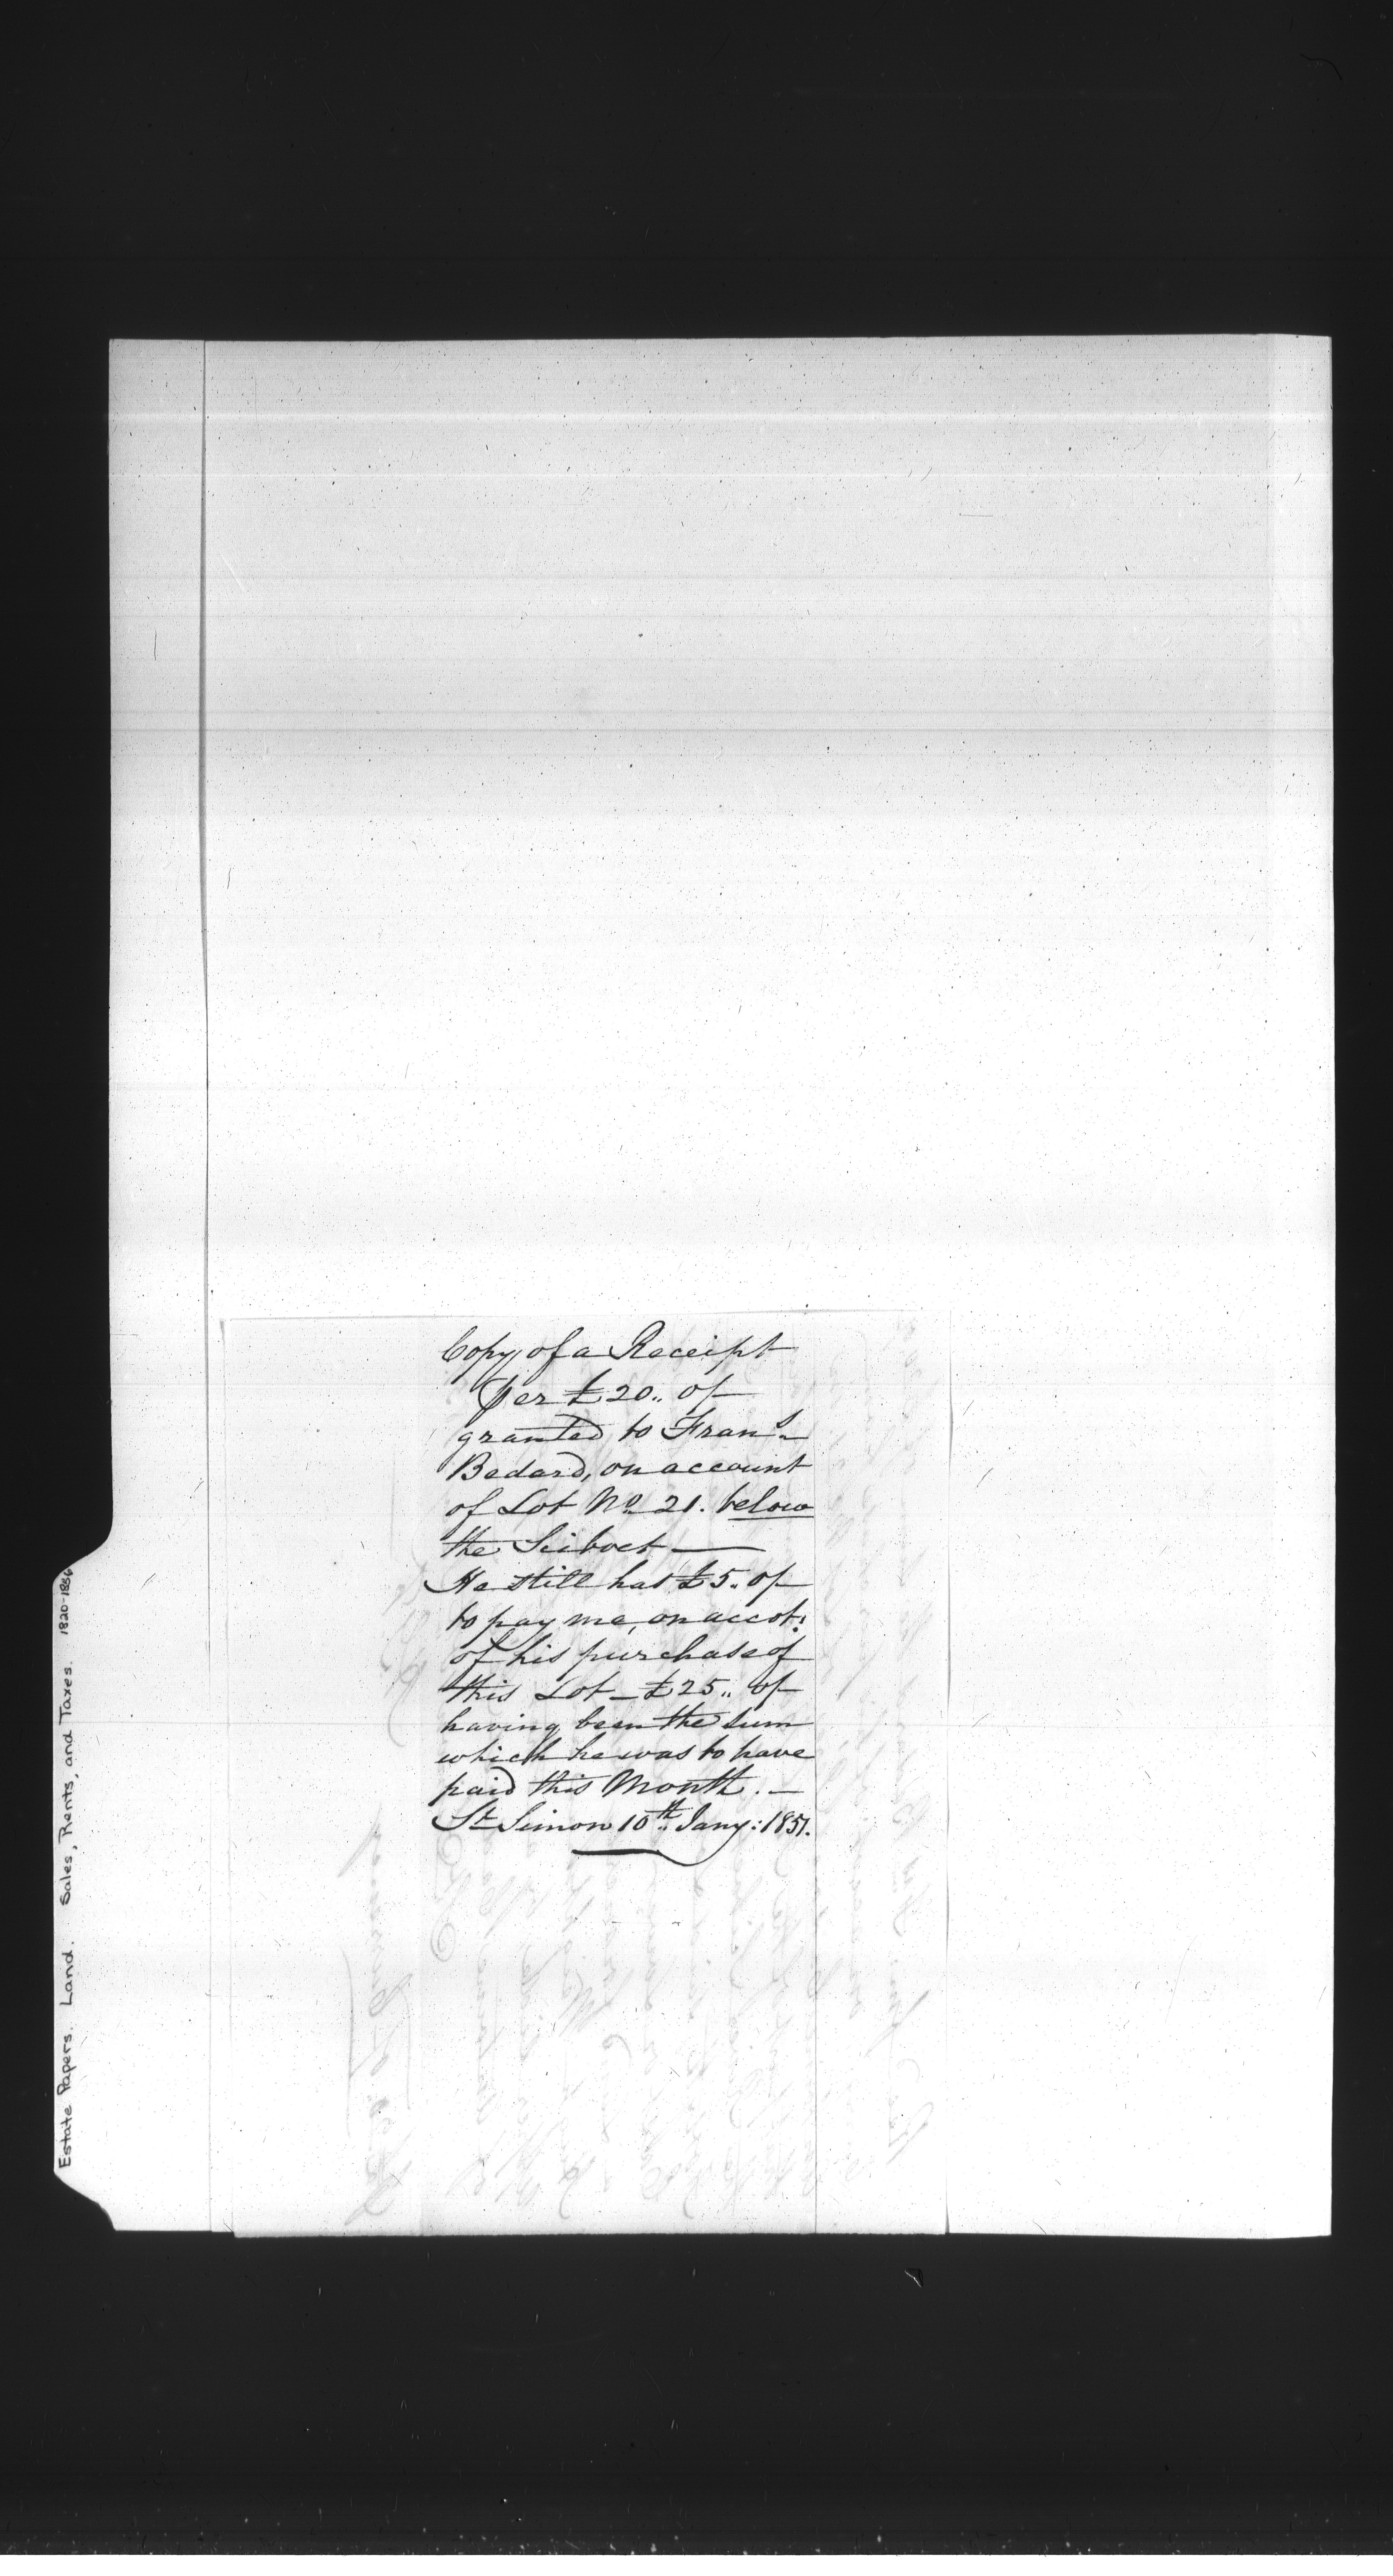 Copy of a Receipt
Per £20.. of
granted to Frans
Bedard, on account
of Lot No. 21. below
the Sciboct —
He still has £5.. of
to pay me, on accot:
of his purchase of
this Lot – £25.. of
having been the sum
which he was to have
paid this Month. —
St Simon 10th Jany: 1851.
Estate Papers. Land. Sales, Rents, and Taxes. 1820-1856